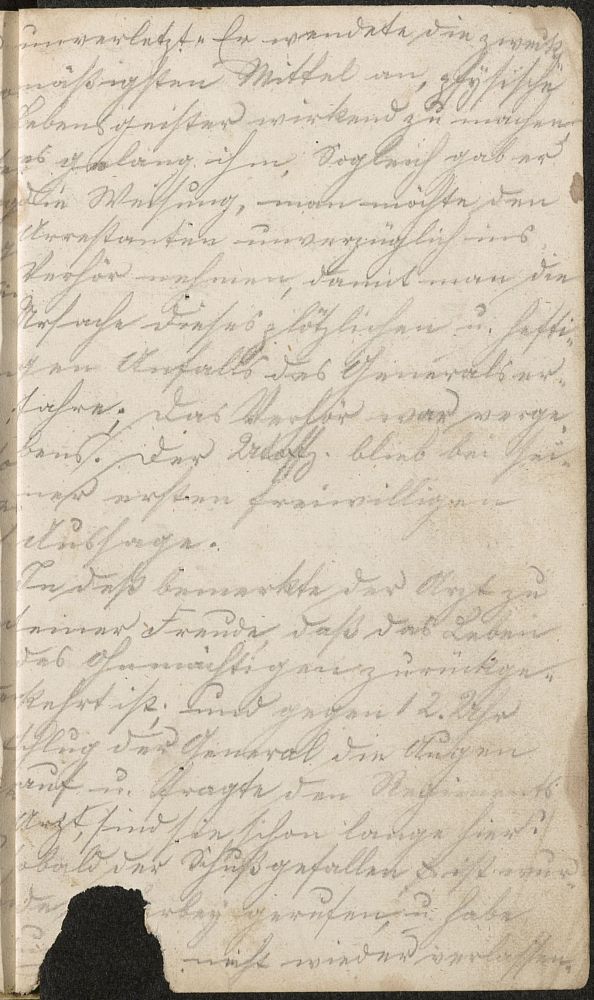 unverletzt. Er wendete die zweck-
mäßigsten Mittel an, physische
Lebensgeister wirkend zu machen
es gelang ihm, Sogleich gab er
die Weisung, man möchte den
Arrestanten unverzüglich ins
Verhör nehmen, damit man die
Ursache dieses plötzlichen u. hefti-
gen Anfalls des Generals er-
fahre; das Verhör war verge
bens. Der blieb bei sei-
ner ersten freiwilligen
Aussage.
Indeß bemerkte der Arzt zu
seiner Freude, daß das Leben
des Ohnmächtigen zurückge-
kehrt ist; und gegen 12. Uhr
schlug der General die Augen
auf u. fragte den Regiments
Arzt, sind sie schon lange hier?
sobald der Schuß gefallen ist wur-
de, gerufen, u. habe
nicht wieder verlassen.